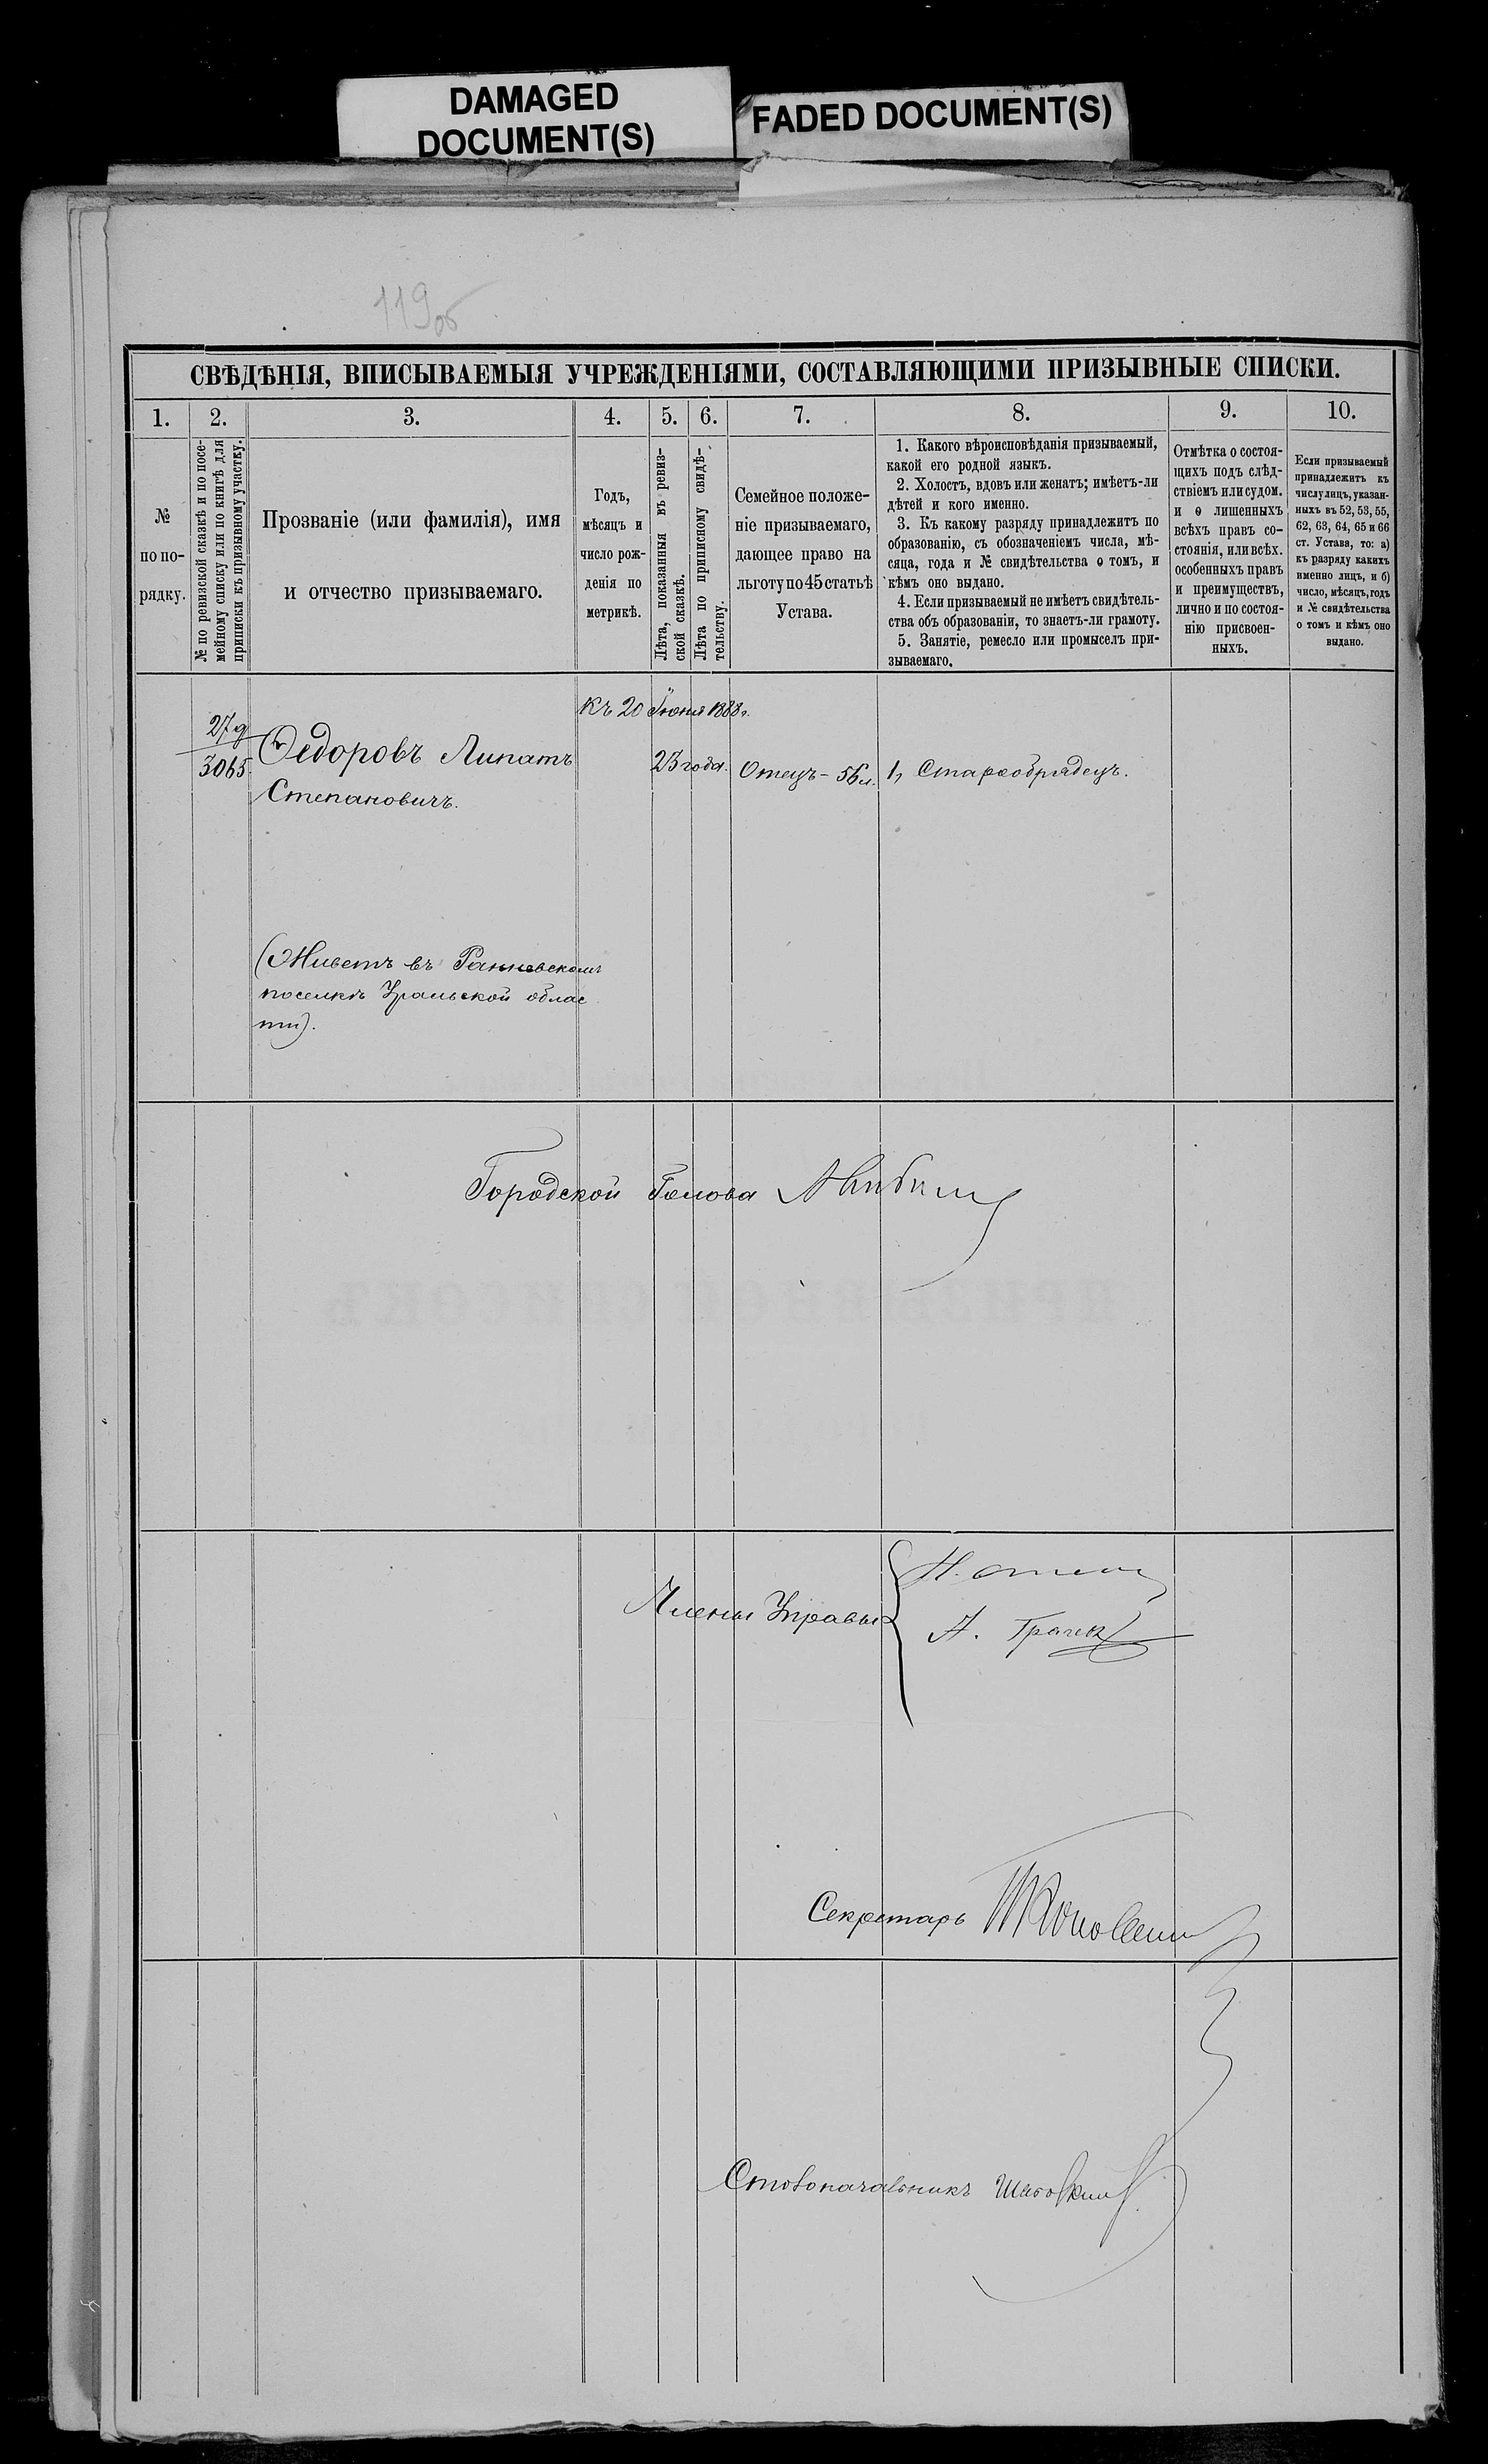 DAMAGED
DOCUMENT(S)
FADED DOCUMENT(S)
119об
СВѢДѢНІЯ, ВПИСЫВАЕМЫЯ УЧРЕЖДЕНІЯМИ, СОСТАВЛЯЮЩИМИ ПРИЗЫВНЫЕ СПИСКИ.
1.
№
по по-
рядку.
2.
№ по ревизской сказкѣ и по посе-
мейному списку или по книгѣ для
приписки къ призывному участку.
3.
Прозваніе (или фамилія), имя
и отчество призываемаго.
4.
Годъ,
мѣсяцъ и
число рож-
денія по
метрикѣ.
5.
Лѣта, показанныя въ ревиз-
ской сказкѣ.
6.
Лѣта по приписному свидѣ-
тельству.
7.
Семейное положе-
ніе призываемаго,
дающее право на
льготу по 45 статьѣ
Устава.
8.
1. Какого вѣроисповѣданія призываемый,
какой его родной языкъ.
2. Холостъ, вдовъ или женатъ; имѣетъ-ли
дѣтей и кого именно.
3. Къ какому разряду принадлежитъ по
образованію, съ обозначеніемъ числа, мѣ-
сяца, года и № свидѣтельства о томъ, и
кѣмъ оно выдано.
4. Если призываемый не имѣетъ свидѣтель-
ства объ образованіи, то знаетъ-ли грамоту.
5. Занятіе, ремесло или промыселъ при-
зываемаго.
9.
Отмѣтка о состоя-
щихъ подъ слѣд-
ствіемъ или судом.
и о лишенныхъ
всѣхъ правъ со-
стоянія, или всѣх.
особенныхъ правъ
и преимуществъ,
лично и по состоя-
нію присвоен-
ныхъ.
10.
Если призываемый
принадлежитъ къ
числу лицъ, указан-
ныхъ въ 52, 53, 55,
62, 63, 64, 65 и 66
ст. Устава, то: а)
къ разряду какихъ
именно лицъ, и б)
число, мѣсяцъ, годъ
и № свидѣтельства
о томъ и кѣмъ оно
выдано.
къ 20 Іюня 1888 г.
27д
3065.
Ѳедоровъ Липатъ
Степановичъ.
23 года.
Отецъ - 56 л.
1, Старообрядецъ.
(Живетъ въ Ранневскомъ
поселкѣ Уральской облас
ти).
Городской Голова
Члены Управы
Н.
А. Грачев
Секретарь
Столоначальникъ